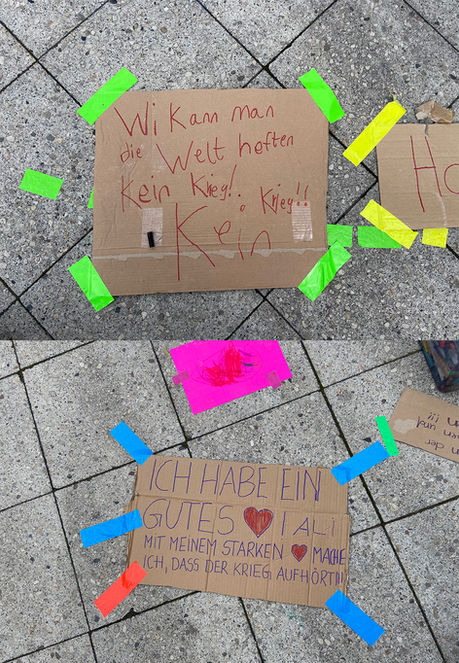 Wi kann man
die Welt heften
Kein Krieg!. Krieg!!
Kein
Ho
ICH HABE EIN
GUTES ❤ ! ALI
MIT MEINEM STARKEN ❤ MACHE
ICH, DASS DER KRIEG AUFHÖRT!!!
n der
en und
n !!!